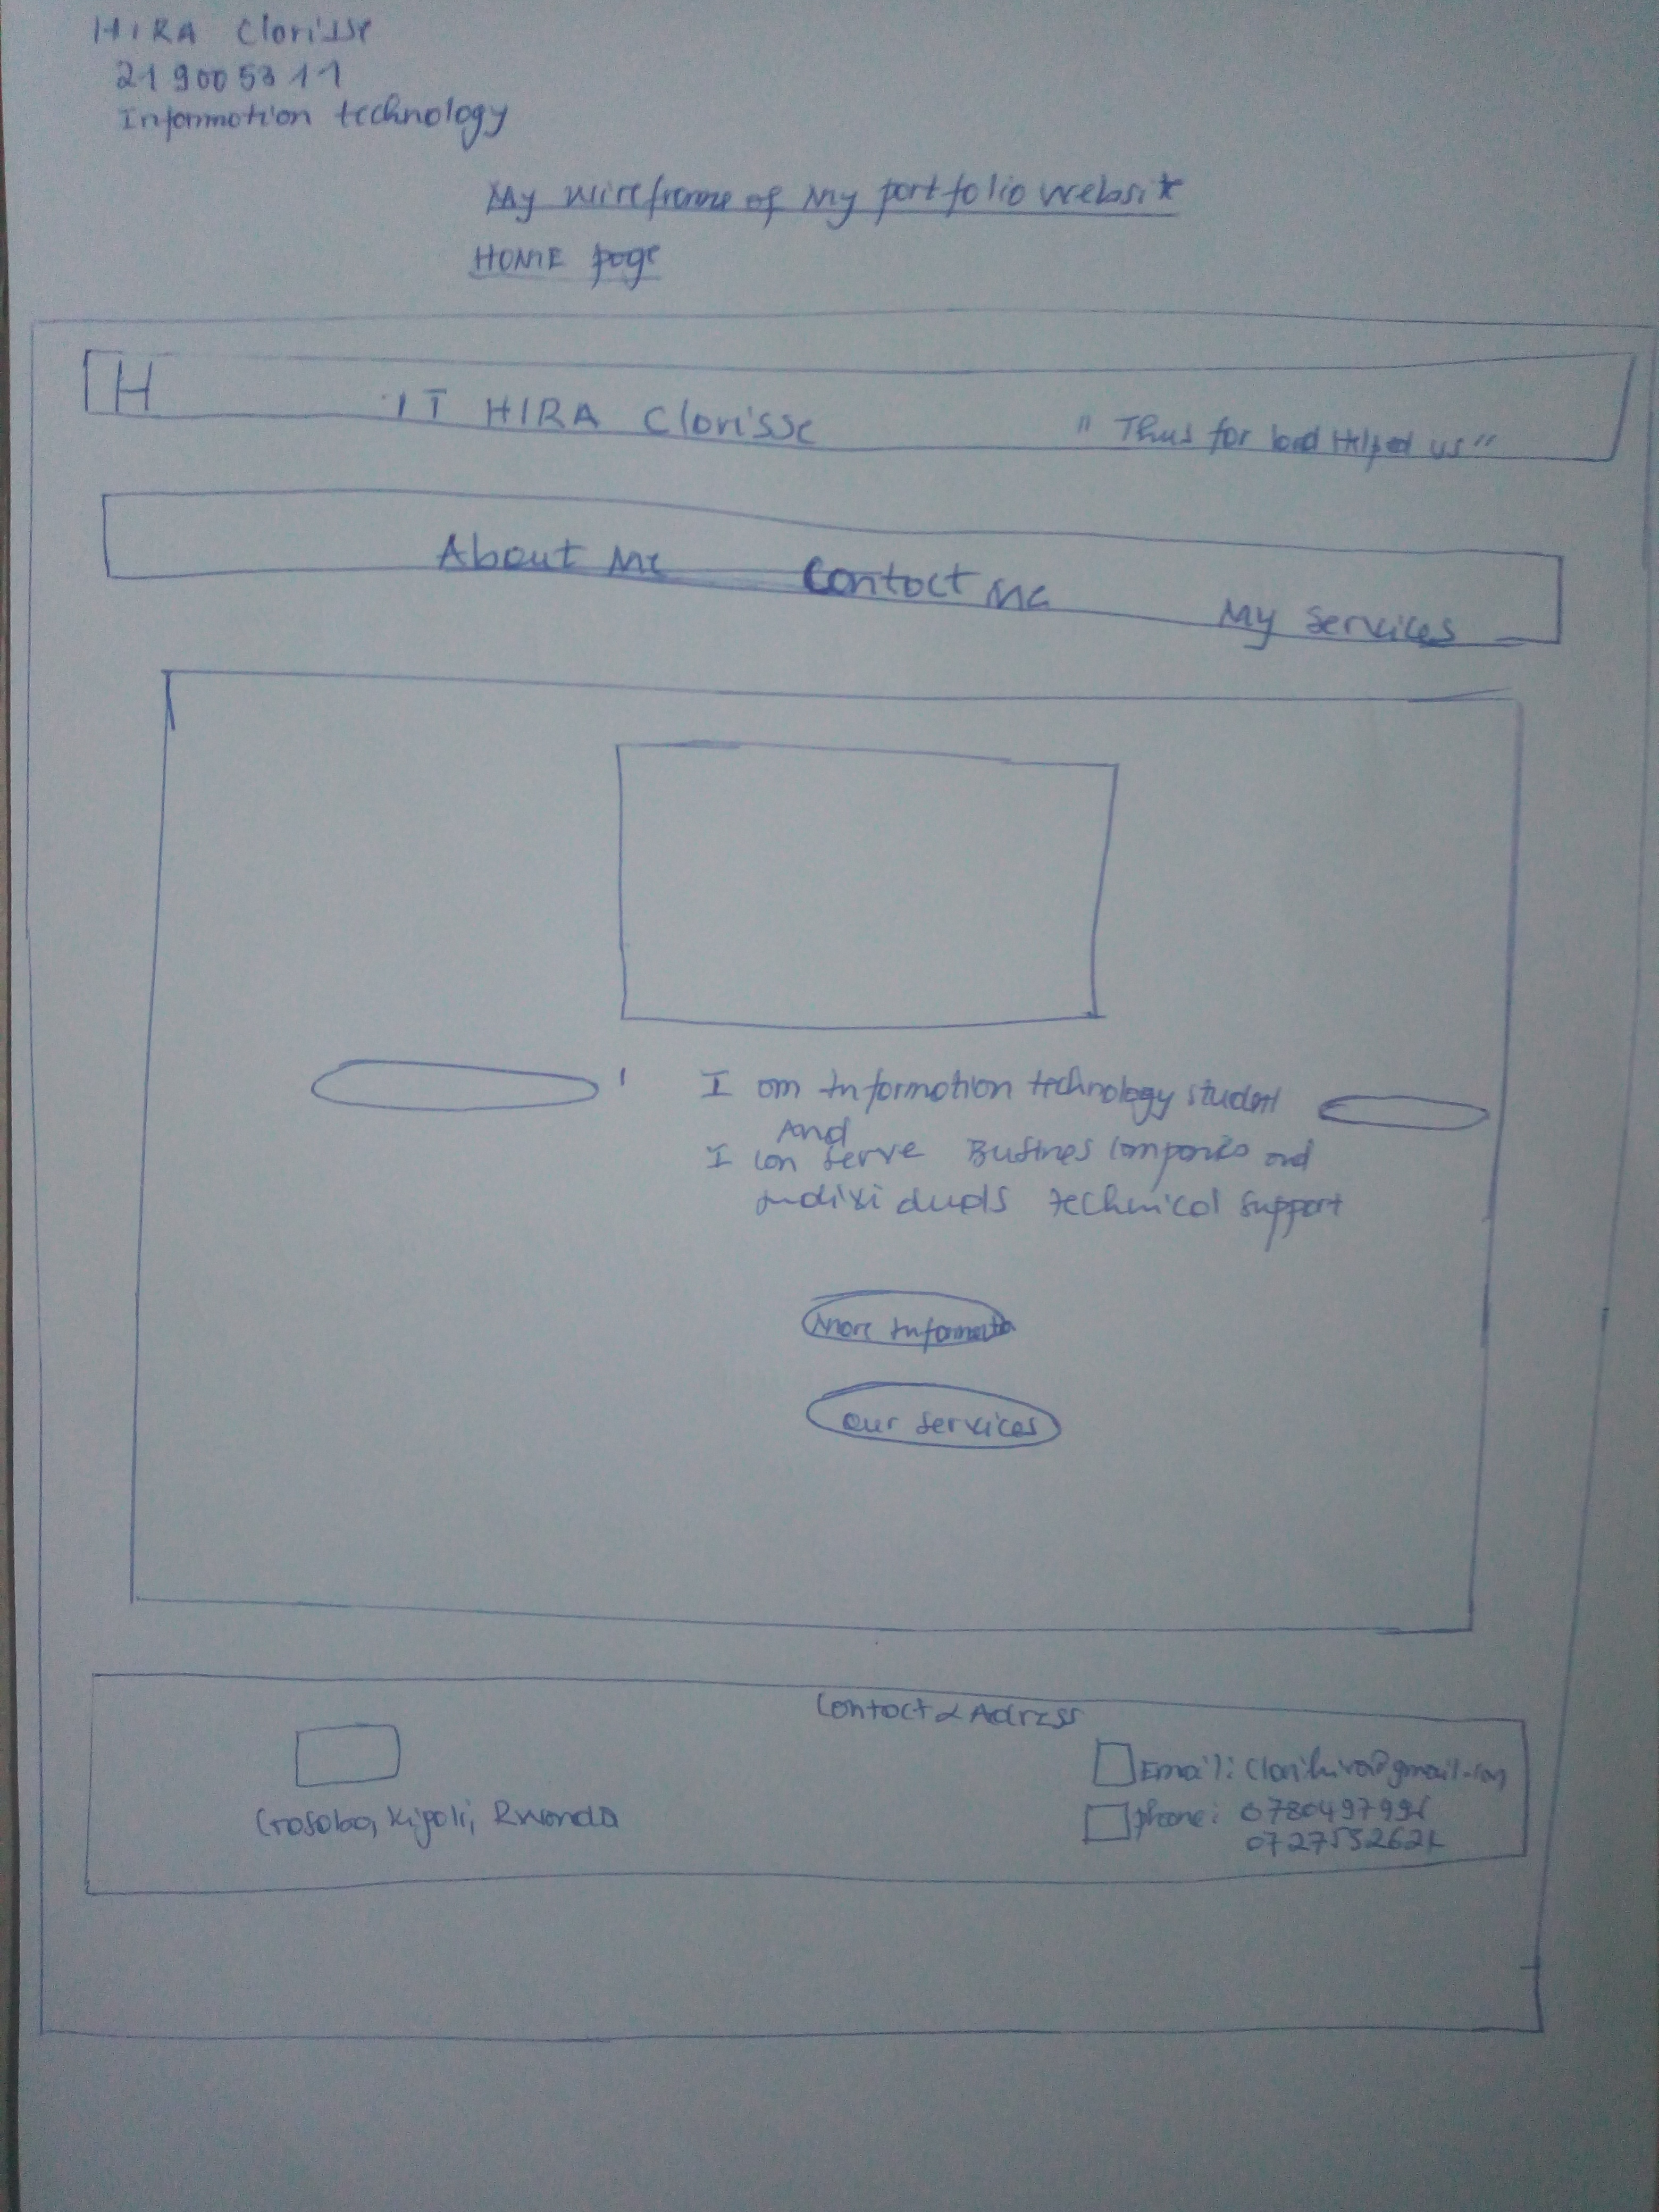 HIRA Clarisse
219005311
Information technology
My wireframe of My portfolio website
HOME page
H
IT HIRA Clarisse
" Thus far lord Helped us"
About Me
Contact Me
My services
I am Information technology student
And
I can serve Busines companies and
individuals technical support
More Information
our services
Contact & Adress
Email: clarihira@gmail.com
Gasabo, Kigali, Rwanda
phone: